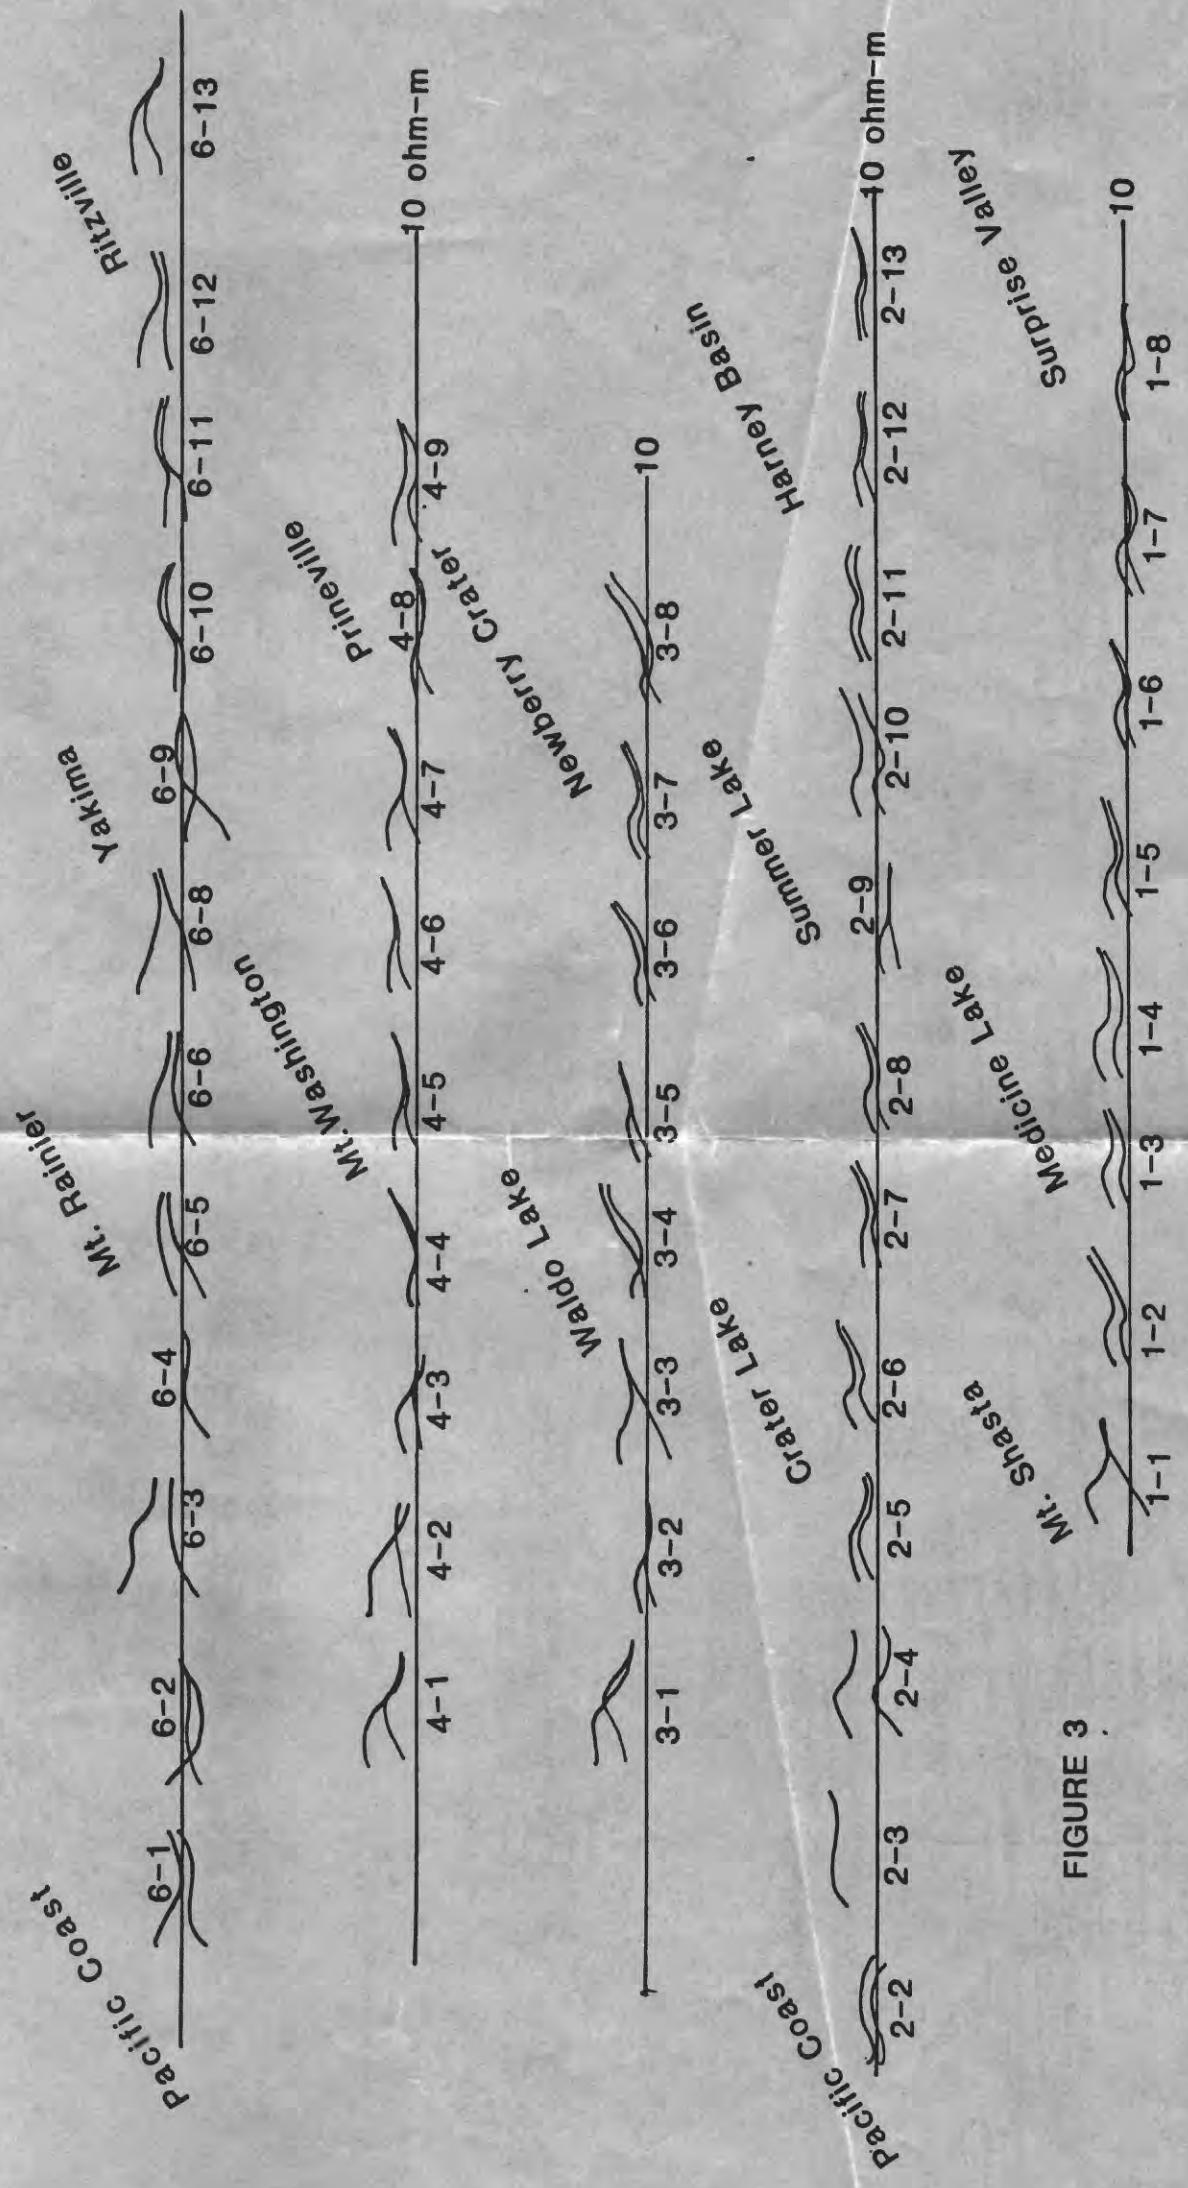 Pacific Coast
Mt. Rainier
Yakima
Ritzville
6-1
6-2
6-3
6-4
6-5
6-6
6-8
6-9
6-10
6-11
6-12
6-13
Mt. Washington
Prineville
4-1
4-2
4-3
4-4
4-5
4-6
4-7
4-8
4-9
10 ohm-m
Waldo Lake
Newberry Crater
3-1
3-2
3-3
3-4
3-5
3-6
3-7
3-8
10
Pacific Coast
Crater Lake
Summer Lake
Harney Basin
2-2
2-3
2-4
2-5
2-6
2-7
2-8
2-9
2-10
2-11
2-12
2-13
10 ohm-m
Mt. Shasta
Medicine Lake
Surprise Valley
1-1
1-2
1-3
1-4
1-5
1-6
1-7
1-8
10
FIGURE 3